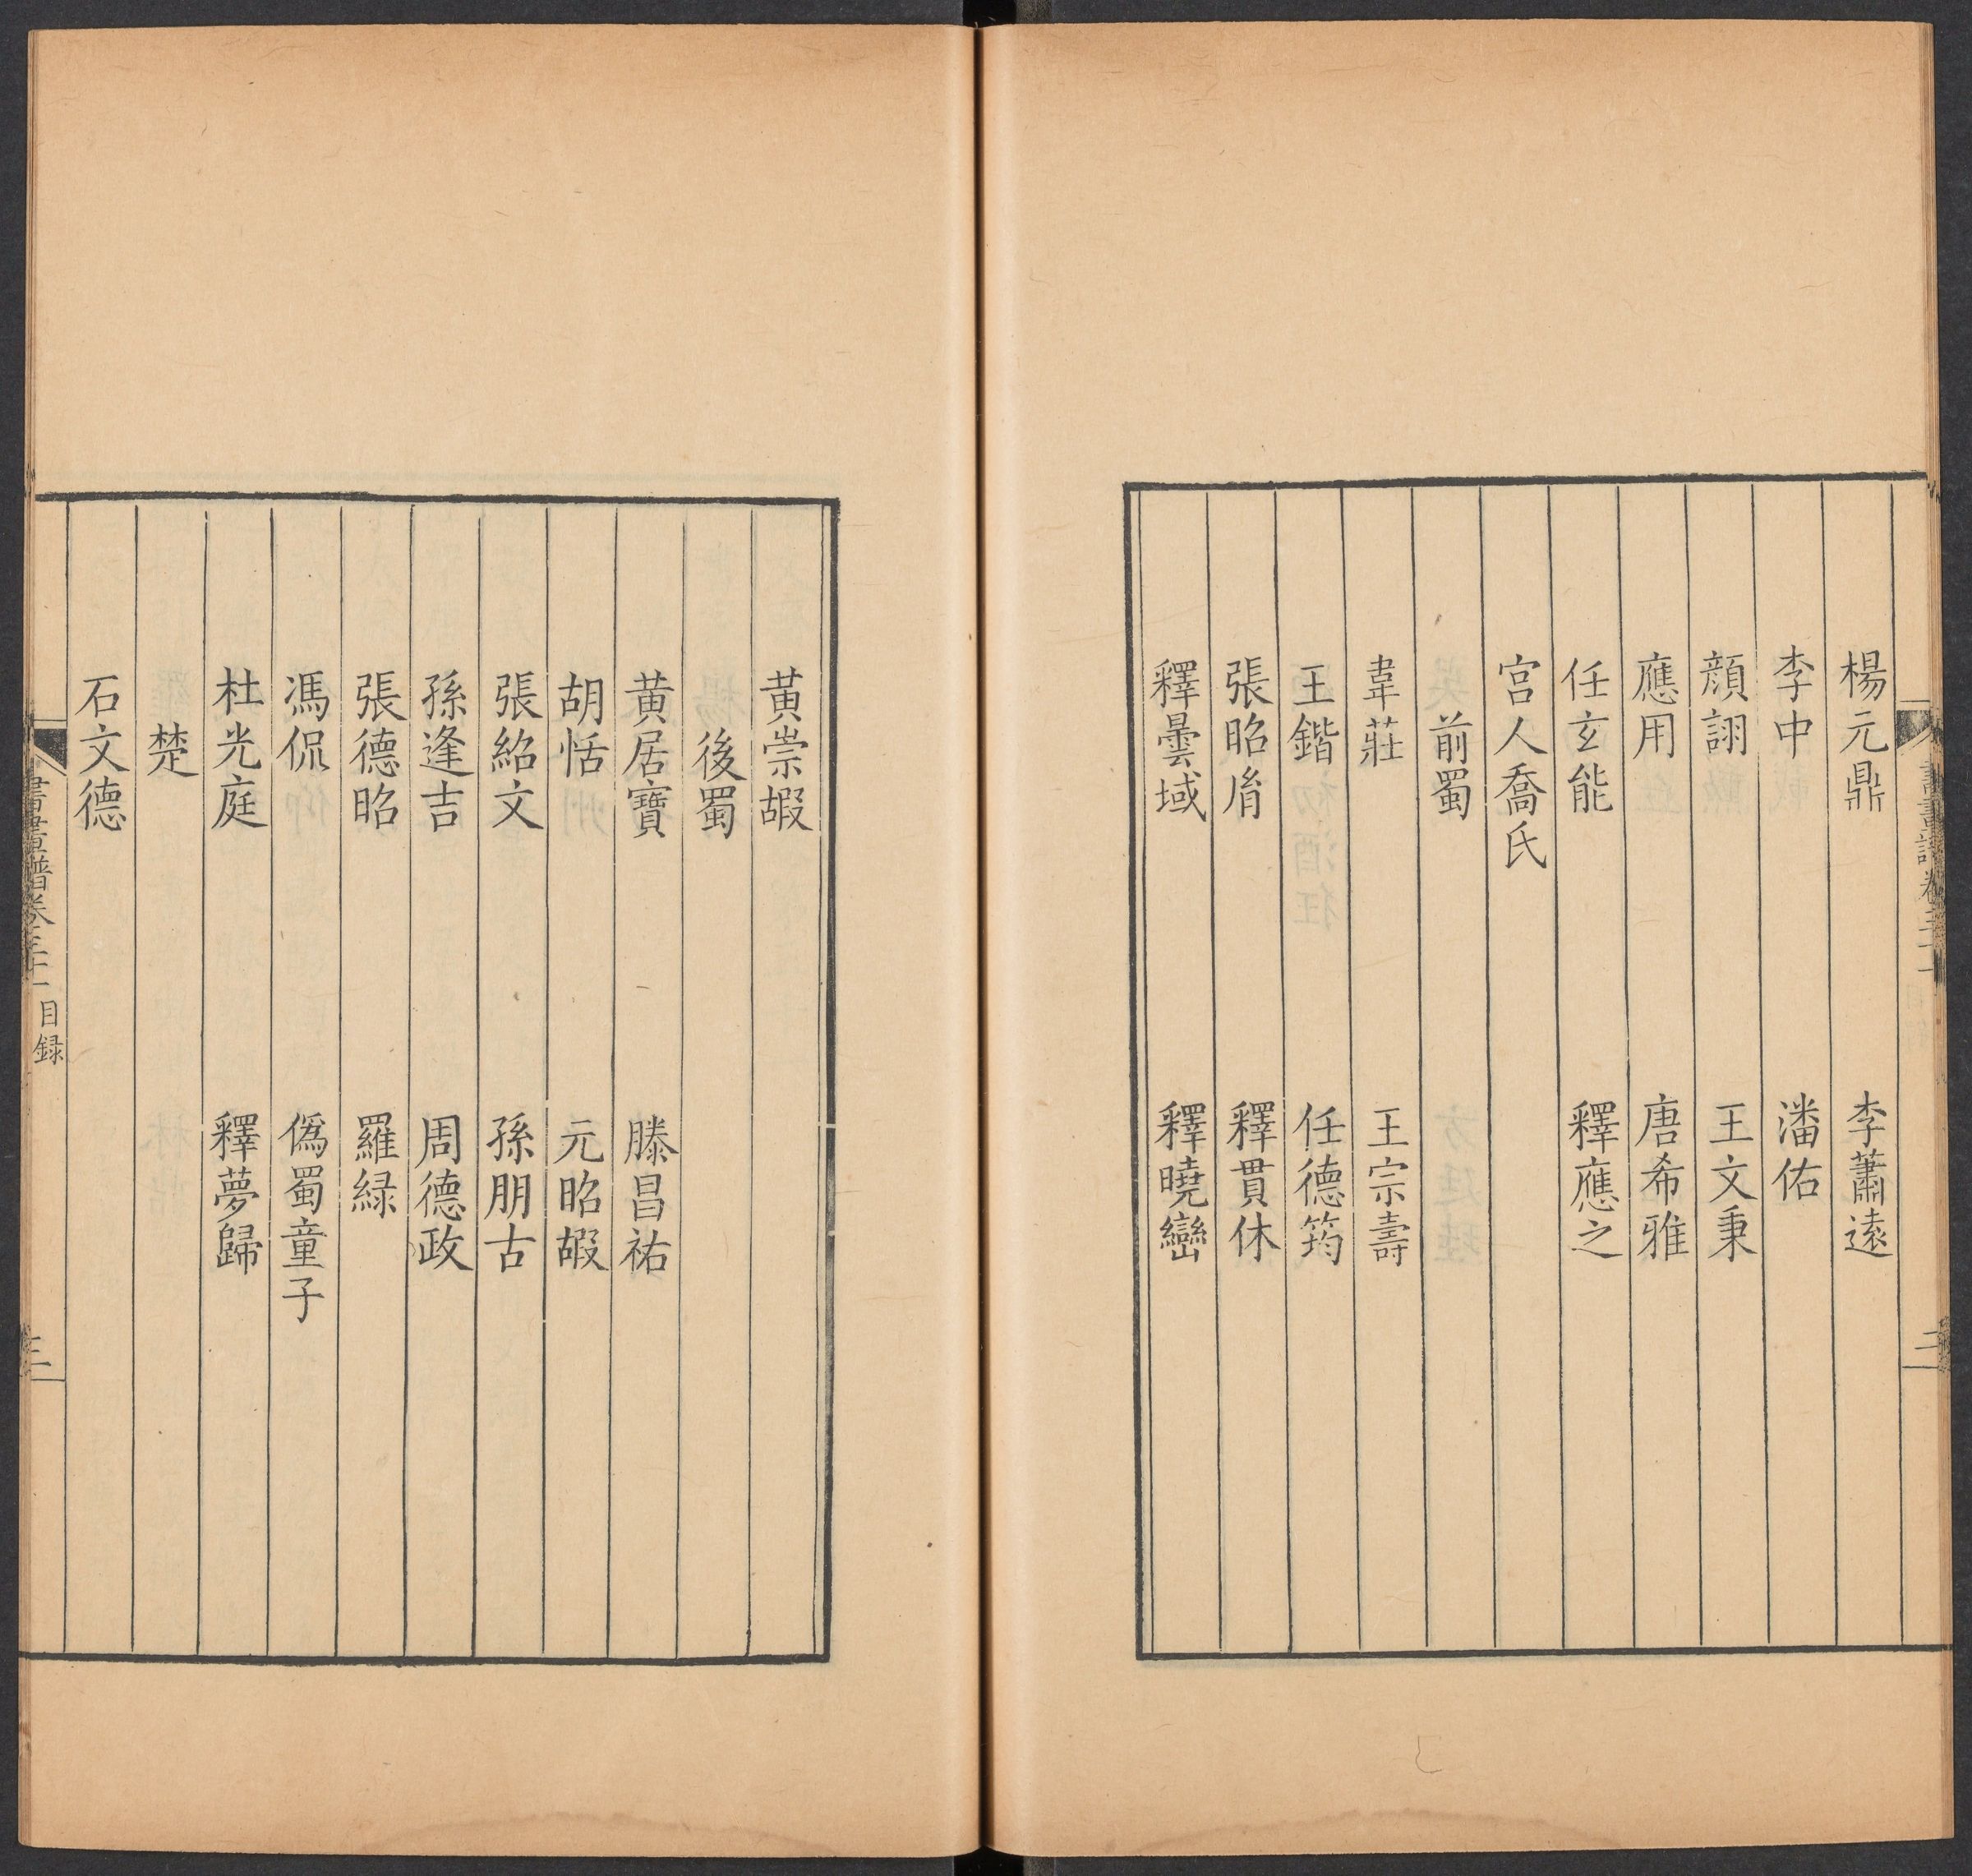 楊元鼎 李蕭遠
李中 潘佑
顔詡 王文秉
應用 唐希雅
任玄能 釋應之
宮人喬氏
前蜀
韋莊 王宗壽
王鍇 任德筠
張昭胤 釋貫休
釋曇域 釋曉巒
黄崇嘏
後蜀
黄居寶 滕昌祐
胡恬 元昭嘏
張紹文 孫朋古
孫逢吉 周德政
張德昭 羅緑
馮侃 僞蜀童子
杜光庭 釋夢歸
楚
石文德
書畫譜卷三十一 目録 三